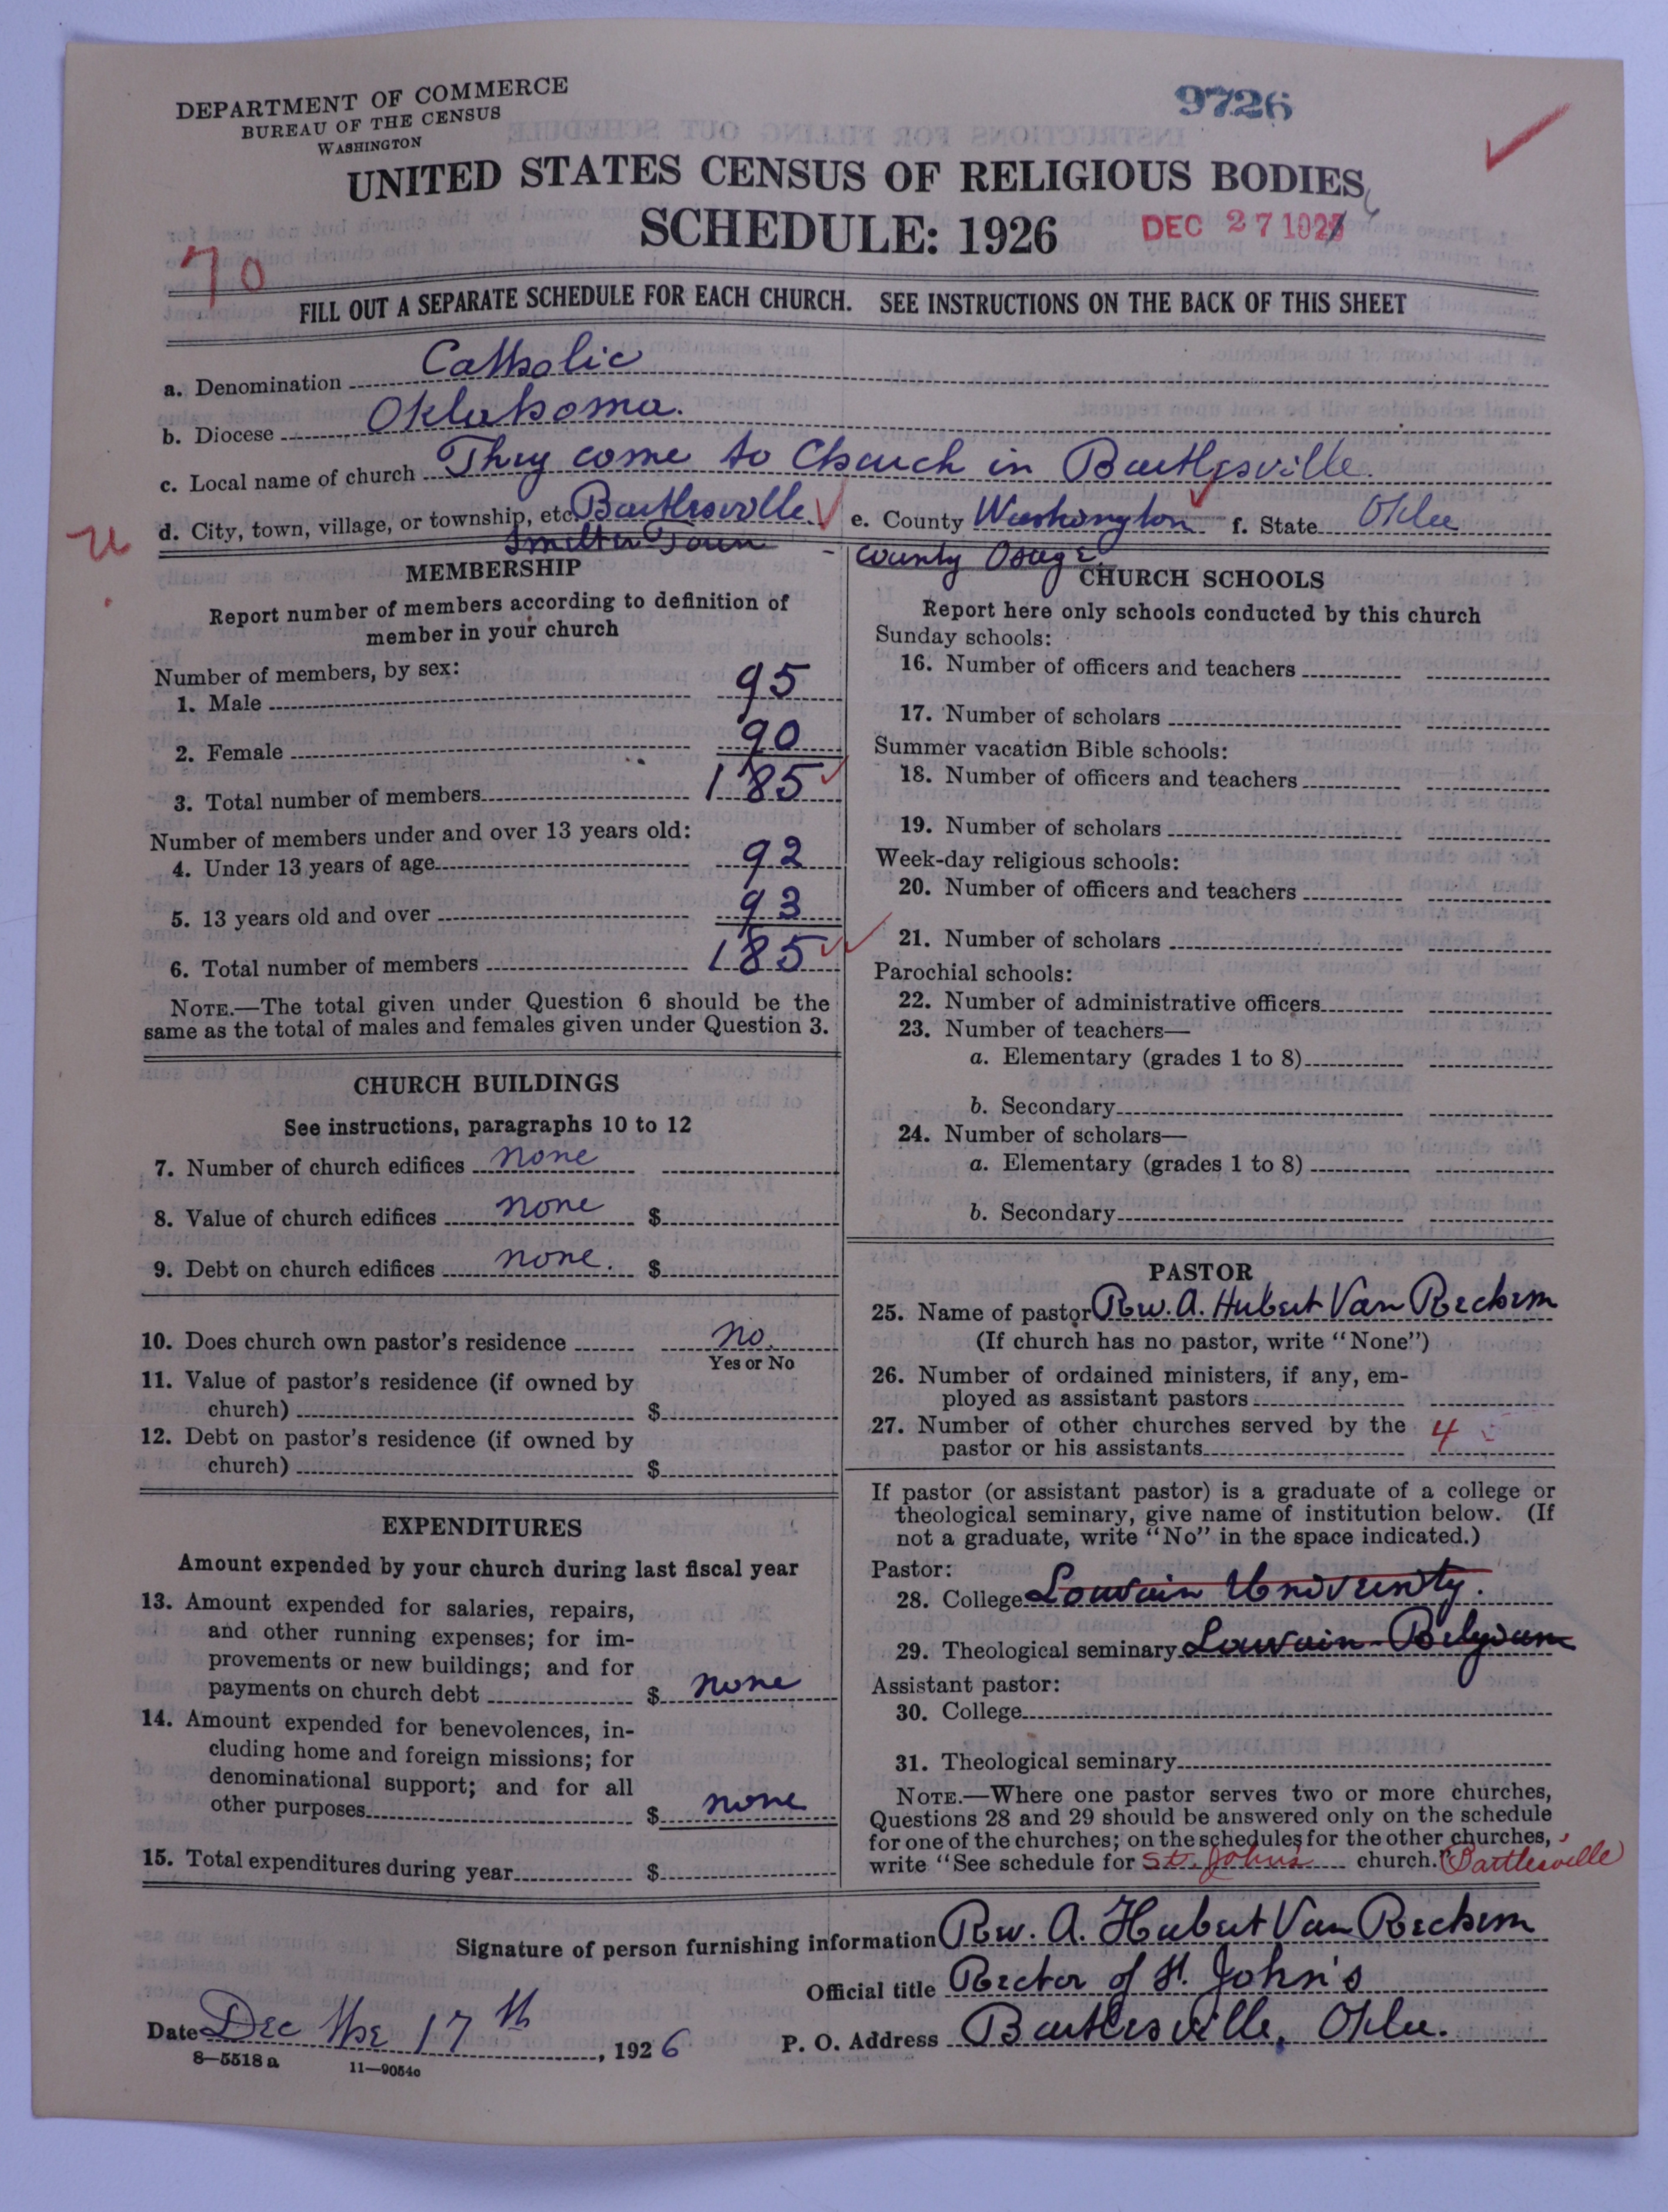 DEPARTMENT OF COMMERCE
BUREAU OF THE CENSUS
WASHINGTON
9726
UNITED STATES CENSUS OF RELIGIOUS BODIES
SCHEDULE: 1926
DEC 27 192
70
FILL OUT A SEPARATE SCHEDULE FOR EACH CHURCH. SEE INSTRUCTIONS ON THE BACK OF THIS SHEET
a. Denomination Catholic
b. Diocese Oklahoma.
c. Local name of church They come to Church in Bartlesville.
d. City, town, village, or township, etc. Bartlesville e. County Washington f. State Okla
Smelter Town - County Osage
MEMBERSHIP
Report number of members according to definition of
member in your church
Number of members, by sex:
1. Male 95
2. Female 90
3. Total number of members 185
Number of members under and over 13 years old:
4. Under 13 years of age 92
5. 13 years old and over 93
6. Total number of members 185
NOTE.—The total given under Question 6 should be the
same as the total of males and females given under Question 3.
CHURCH BUILDINGS
See instructions, paragraphs 10 to 12
7. Number of church edifices none
8. Value of church edifices none $
9. Debt on church edifices none. $
10. Does church own pastor's residence no.
Yes or No
11. Value of pastor's residence (if owned by
church) $
12. Debt on pastor's residence (if owned by
church) $
EXPENDITURES
Amount expended by your church during last fiscal year
13. Amount expended for salaries, repairs,
and other running expenses; for im-
provements or new buildings; and for
payments on church debt $ none
14. Amount expended for benevolences, in-
cluding home and foreign missions; for
denominational support; and for all
other purposes $ none
15. Total expenditures during year $
CHURCH SCHOOLS
Report here only schools conducted by this church
Sunday schools:
16. Number of officers and teachers
17. Number of scholars
Summer vacation Bible schools:
18. Number of officers and teachers
19. Number of scholars
Week-day religious schools:
20. Number of officers and teachers
21. Number of scholars
Parochial schools:
22. Number of administrative officers
23. Number of teachers—
a. Elementary (grades 1 to 8)
b. Secondary
24. Number of scholars—
a. Elementary (grades 1 to 8)
b. Secondary
PASTOR
25. Name of pastor Rev. A. Hubert Van Rechem
(If church has no pastor, write "None")
26. Number of ordained ministers, if any, em-
ployed as assistant pastors
27. Number of other churches served by the
pastor or his assistants 4
If pastor (or assistant pastor) is a graduate of a college or
theological seminary, give name of institution below. (If
not a graduate, write "No" in the space indicated.)
Pastor:
28. College Louvain University.
29. Theological seminary Louvain-Belgium
Assistant pastor:
30. College
31. Theological seminary
NOTE.—Where one pastor serves two or more churches,
Questions 28 and 29 should be answered only on the schedule
for one of the churches; on the schedules for the other churches,
write "See schedule for St. Johns church." (Bartlesville)
Signature of person furnishing information Rev. A. Hubert Van Rechem
Official title Rector of St. John's
Date Dec the 17th, 1926 P. O. Address Bartlesville, Okla.
8—5518 a 11—9054o